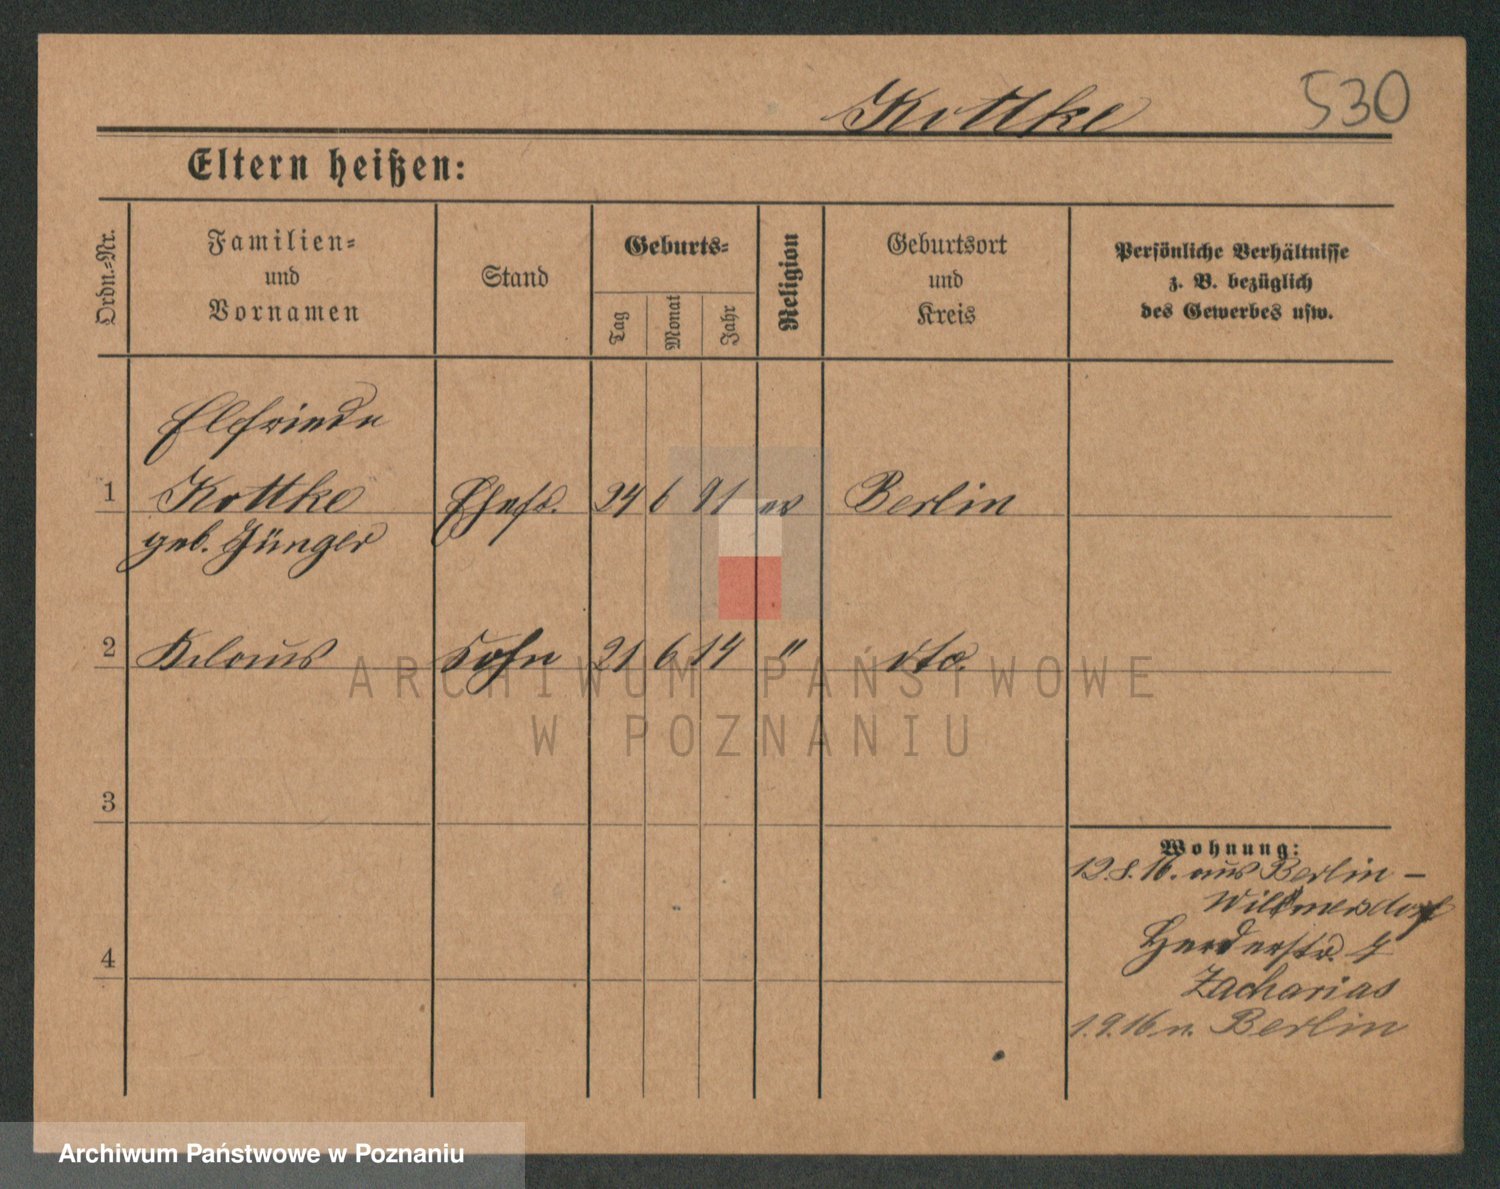 Kottke 530
Eltern heißen:
Ordn.-Nr.
Familien-
und
Vornamen
Stand
Geburts-
Tag
Monat
Jahr
Religion
Geburtsort
und
Kreis
Persönliche Verhältnisse
z. B. bezüglich
des Gewerbes usw.
Elfriede
1 Kottke Ehefr. 24 6 91 ev Berlin
geb. Günger
2 Klaus Sohn 21 6 14 " dto.
3
Wohnung:
12.8.16. aus Berlin-
Wilmersdorf
Herderstr. 4
4
Zacharias
1.9.16 n. Berlin
ARCHIWUM PAŃSTWOWE
W POZNANIU
Archiwum Państwowe w Poznaniu